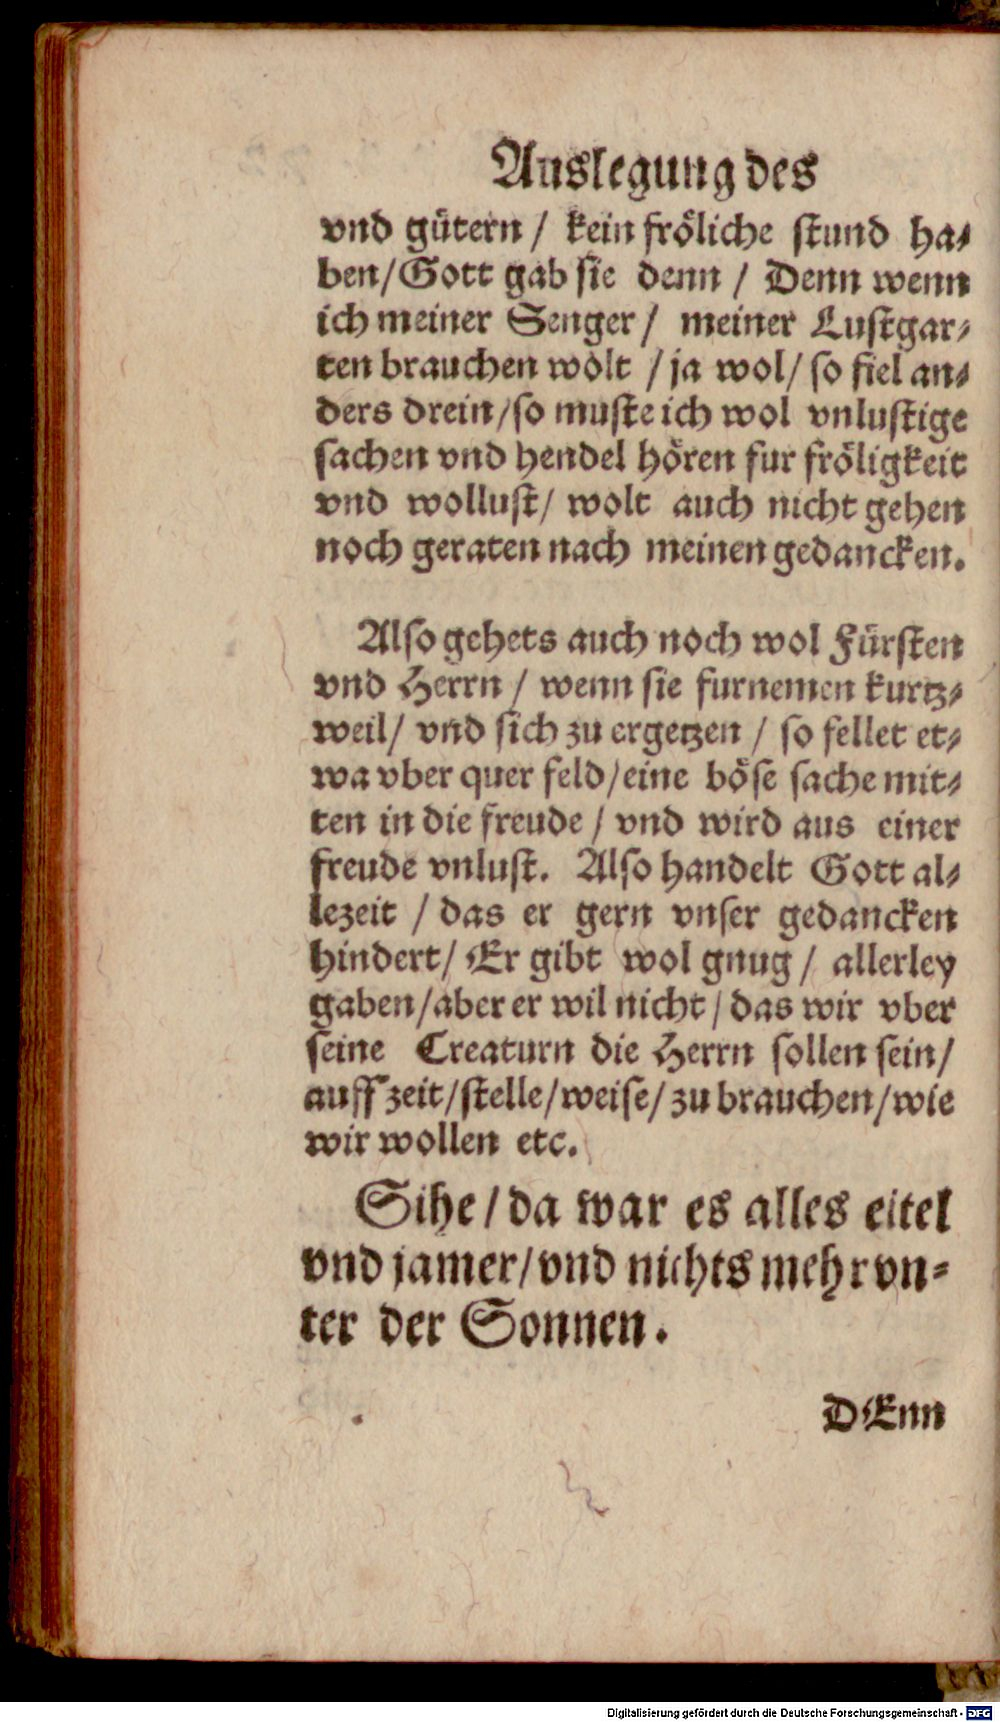 Auslegung des
vnd gütern / kein fröliche stund ha-
ben/Gott gab sie denn / Denn wenn
ich meiner Senger / meiner Lustgar-
ten brauchen wolt / ja wol/ so fiel an-
ders drein/so muste ich wol vnlustige
sachen vnd hendel hören fur fröligkeit
vnd wollust/ wolt auch nicht gehen
noch geraten nach meinen gedancken.
Also gehets auch noch wol Fürsten
vnd Herrn / wenn sie furnemen kurtz-
weil/ vnd sich zu ergetzen / so fellet et-
wa vber quer feld/eine böse sache mit-
ten in die freude / vnd wird aus einer
freude vnlust. Also handelt Gott al-
lezeit / das er gern vnser gedancken
hindert/ Er gibt wol gnug / allerley
gaben/aber er wil nicht / das wir vber
seine Creaturn die Herrn sollen sein/
auff zeit/stelle/weise/ zu brauchen/wie
wir wollen etc.
Sihe / da war es alles eitel
vnd jamer/vnd nichts mehr vn-
ter der Sonnen.
DEnn
Digitalisierung gefördert durch die Deutsche Forschungsgemeinschaft - DFG